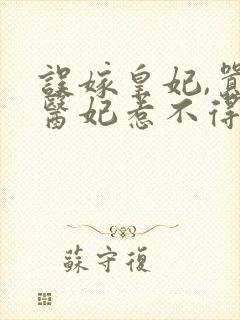 誤嫁皇妃,囂
醫妃惹不得
蘇守復